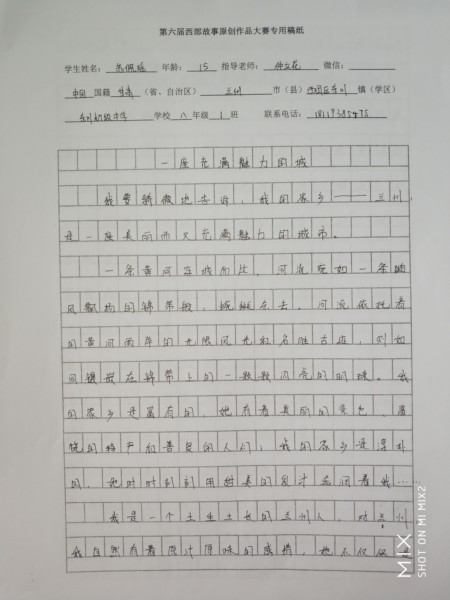 第六届西部故事原创作品大赛专用稿纸
学生姓名： 年龄：15 指导老师： 微信：
中国 国籍 甘肃 （省、自治区） 兰州 市（县） 西固区东川 镇（学区）
东川初级中学 学校 八 年级 1 班 联系电话：
一座充满魅力的城
我要骄傲地告诉，我的家乡——兰州，
是一座美丽而又充满魅力的城市。
一条黄河穿城而过，河流宛如一条随
风飘扬的锦带般，蜿蜒东去，河流依托着
的黄河两岸的无限风光和名胜古迹，则如
同镶嵌在锦带上的一颗颗闪亮的明珠。我
的家乡是富有的，她有着美丽的景色，富
饶的特产和善良的人们；我的家乡是淳朴
的，她时时刻刻用甜美的乳汁
我是一个土生土长的兰州人，对兰州
我自然有着原汁原味的感情，她不仅仅是
SHOT ON MI MIX2
MIX